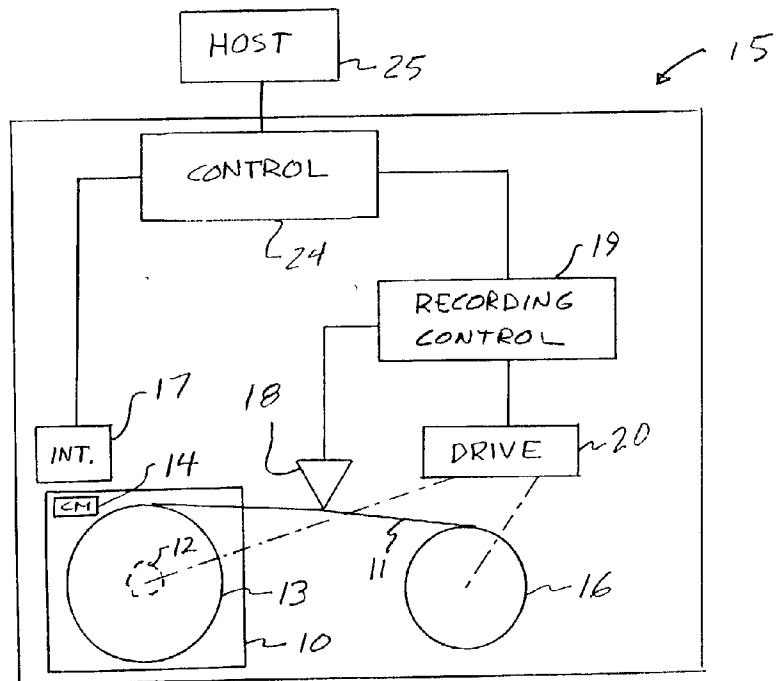 HOST
25
15
CONTROL
24
19
RECORDING
CONTROL
17
INT.
18
DRIVE
20
14
CM
12
11
13
16
10